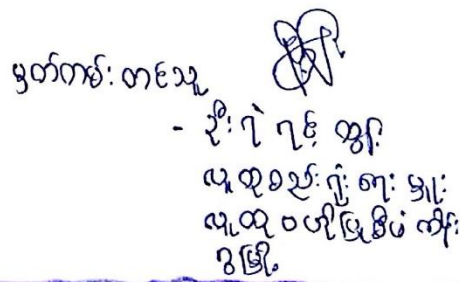 မှတ်တမ်းတင်သူ
- ဦးရဲရင့်ထွန်း
လူထုစည်းရုံးရေးမှူး
လူထုဗဟိုပြုစီမံကိန်း